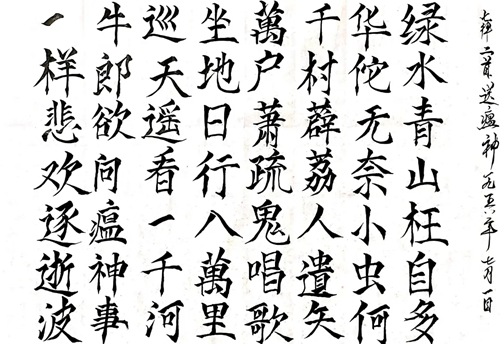 七律二首送瘟神一九五八年七月一日
绿水青山枉自多
华佗无奈小虫何
千村薜荔人遺矢
萬户蕭疏鬼唱歌
坐地日行八萬里
巡天遥看一千河
牛郎欲问瘟神事
一样悲欢逐逝波